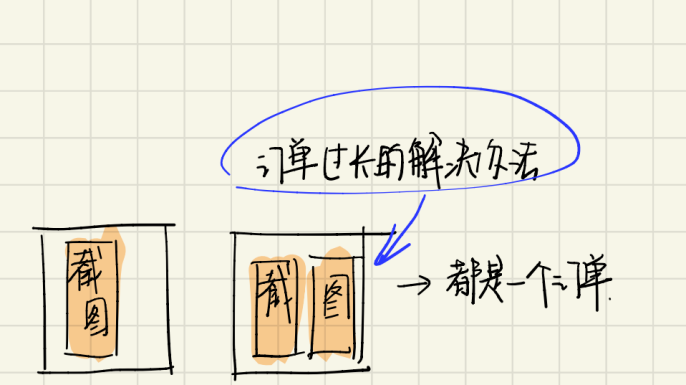 订单过长的解决办法
截图
截 图
→ 都是一个订单.